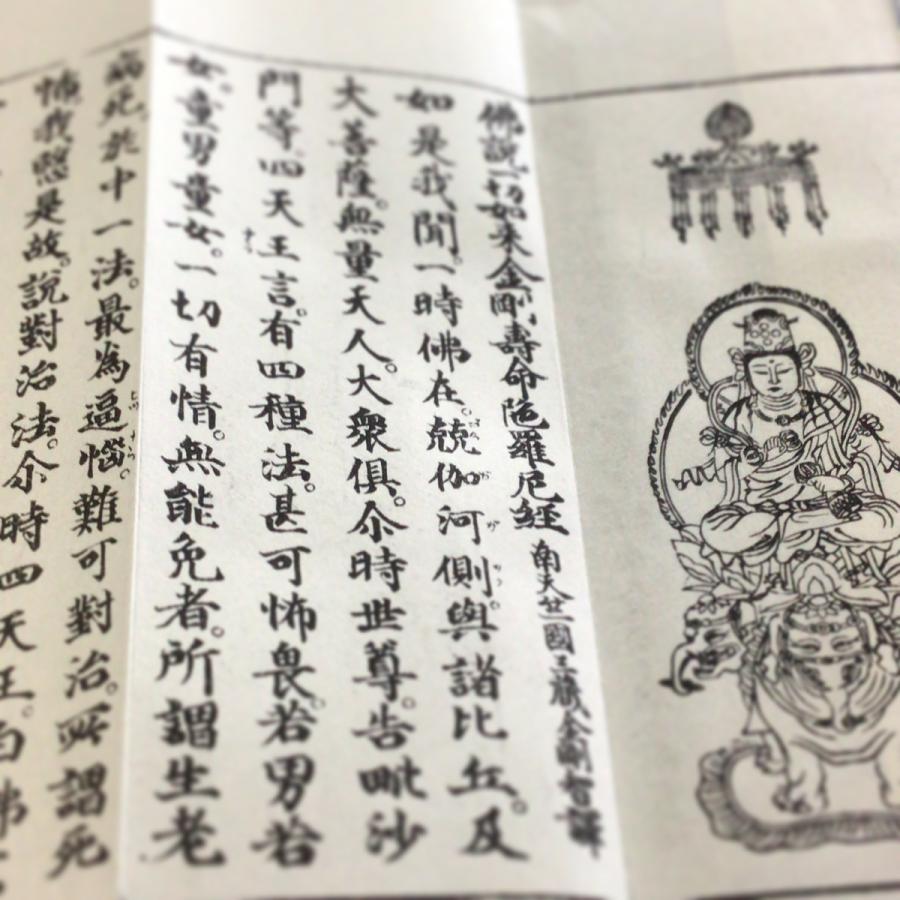 佛説一切如来金剛寿命陀羅尼経 南天竺國三蔵金剛智譯
如是我聞。一時佛在。兢伽河側。與諸比丘。及
大菩薩。無量天人。大衆俱。尒時世尊。告毗沙
門等。四天王言。有四種法。甚可怖畏。若男若
女。童男童女。一切有情。無能免者。所謂生老
病死。於中一法。最為逼惱。難可對治。所謂死
怖。我愍是故。説對治法。尒時四天王。白佛